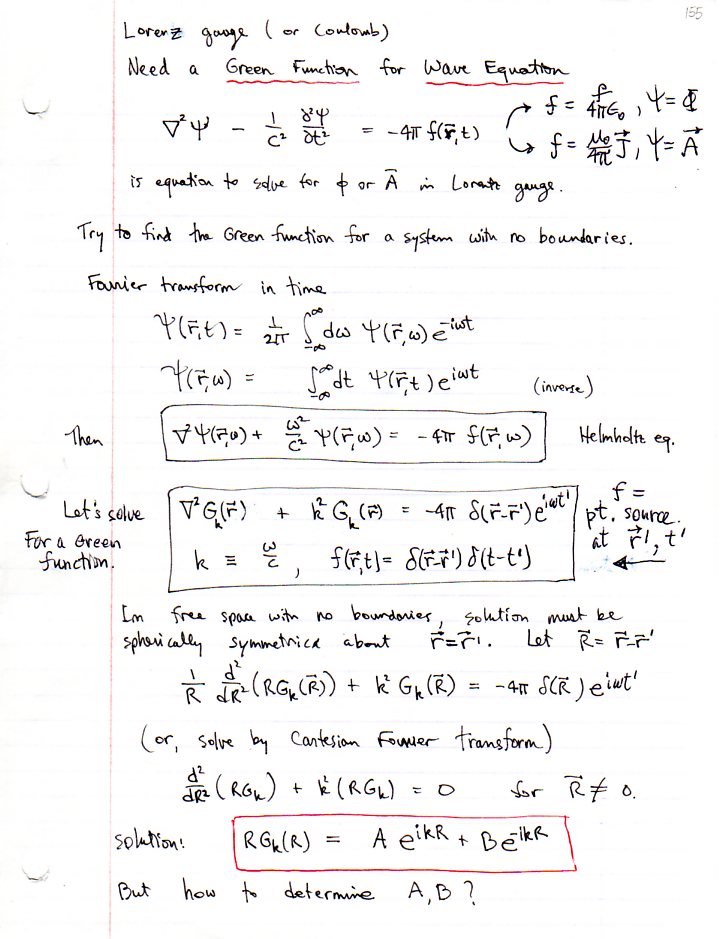 155
Lorenz gauge (or Coulomb)
Need a Green Function for Wave Equation
∇²Ψ - 1/c² ∂²Ψ/∂t² = -4π f(r⃗,t)
f = ρ/4πε₀, Ψ = Φ
f = μ₀/4π J⃗, Ψ = A⃗
is equation to solve for φ or A⃗ in Lorentz gauge.
Try to find the Green function for a system with no boundaries.
Fourier transform in time
Ψ(r⃗,t) = 1/2π ∫_{-∞}^{∞} dω Ψ(r⃗,ω) e^{-iωt}
Ψ(r⃗,ω) = ∫_{-∞}^{∞} dt Ψ(r⃗,t) e^{iωt} (inverse)
Then ∇²Ψ(r⃗,ω) + ω²/c² Ψ(r⃗,ω) = -4π f(r⃗,ω) Helmholtz eq.
Let's solve
For a Green
function.
∇²G_k(r⃗) + k² G_k(r⃗) = -4π δ(r⃗-r⃗') e^{iωt'}
k ≡ ω/c, f(r⃗,t) = δ(r⃗-r⃗') δ(t-t')
f =
pt. source
at r⃗', t'
In free space with no boundaries, solution must be
spherically symmetrical about r⃗=r⃗'. Let R⃗ = r⃗-r⃗'
1/R d²/dR² (RG_k(R⃗)) + k² G_k(R⃗) = -4π δ(R⃗) e^{iωt'}
(or, solve by Cartesian Fourier transform)
d²/dR² (RG_k) + k² (RG_k) = 0 for R⃗ ≠ 0.
Solution: RG_k(R) = A e^{ikR} + B e^{-ikR}
But how to determine A, B ?